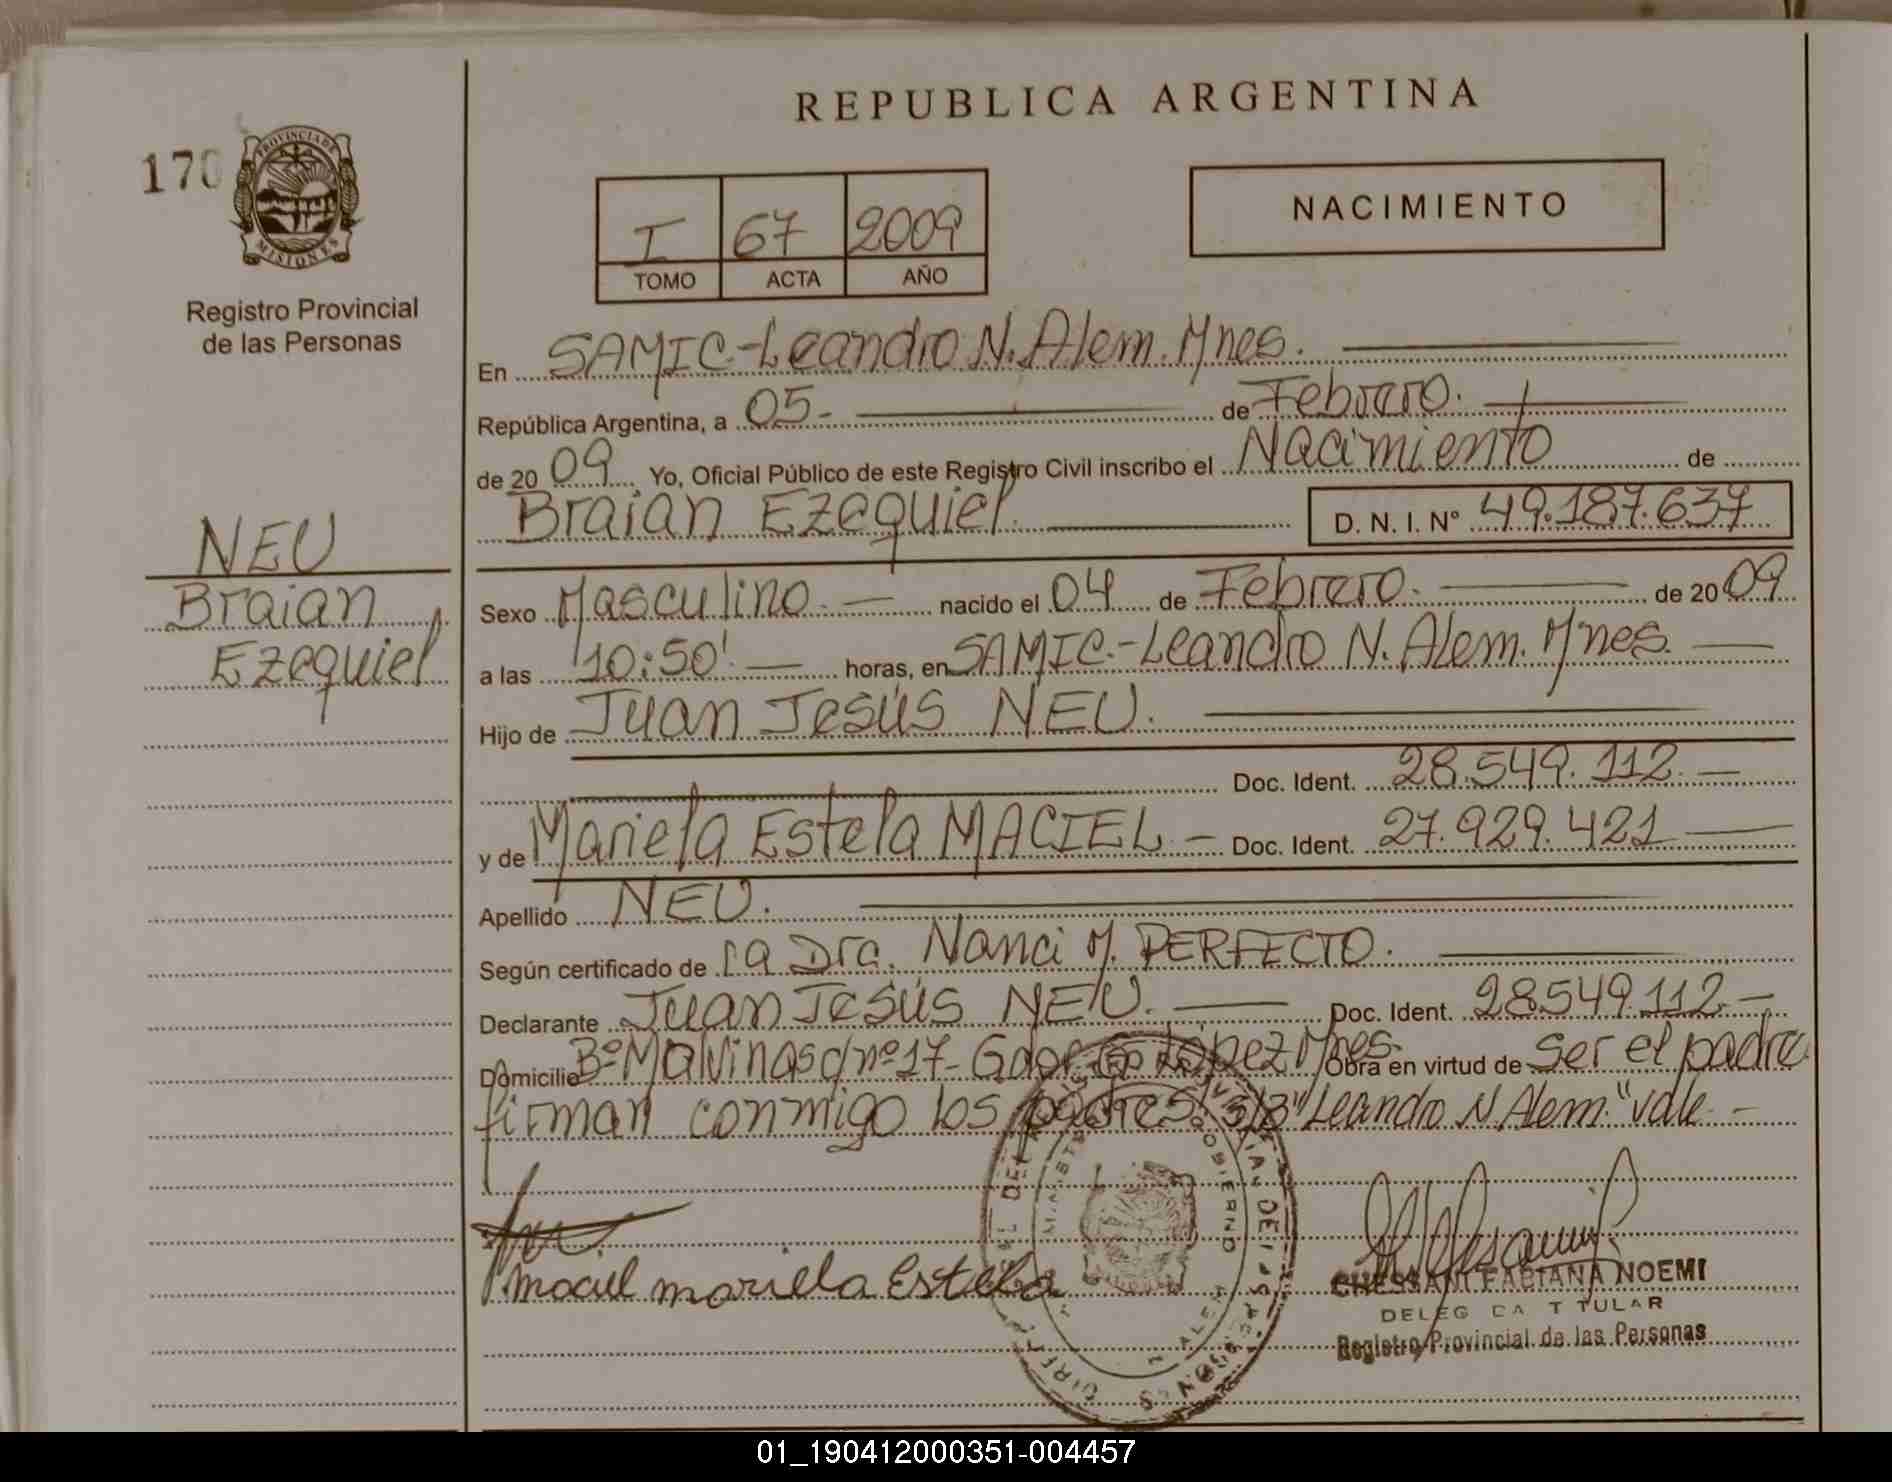 REPUBLICA ARGENTINA
170
PROVINCIA DE
MISIONES
Registro Provincial
de las Personas
I 67 2009
TOMO ACTA AÑO
NACIMIENTO
En SAMIC.-Leandro N. Alem. Mnes.
República Argentina, a 05.- de Febrero.
de 2009. Yo, Oficial Público de este Registro Civil inscribo el Nacimiento de
Braian Ezequiel. D. N. I. Nº 49.187.637
NEU
Braian
Ezequiel
Sexo Masculino. nacido el 04 de Febrero. de 2009
a las 10:50'. horas, en SAMIC.-Leandro N. Alem. Mnes.
Hijo de Juan Jesús NEU.
Doc. Ident. 28.549.112.
y de Mariela Estela MACIEL - Doc. Ident. 27.929.421
Apellido NEU.
Según certificado de la Dra. Nanci M. PERFECTO.
Declarante Juan Jesús NEU. Doc. Ident. 28.549.112.-
Domicilio Bº Malvinas nº 17- López Mnes. Obra en virtud de ser el padre
firman conmigo los padres. S/B "Leandro N. Alem." vale.-
Maciel mariela Estela
CHESSANI FABIANA NOEMI
DELEG DA T TULAR
Registro Provincial de las Personas
01_190412000351-004457